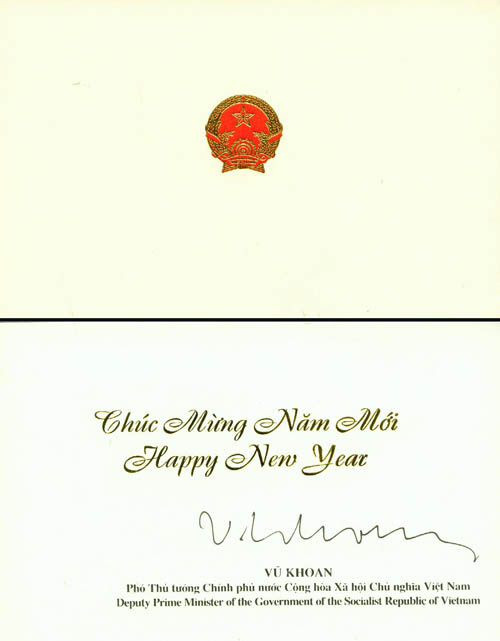 Chúc Mừng Năm Mới
Happy New Year
VŨ KHOAN
Phó Thủ tướng Chính phủ nước Cộng hòa Xã hội Chủ nghĩa Việt Nam
Deputy Prime Minister of the Government of the Socialist Republic of Vietnam